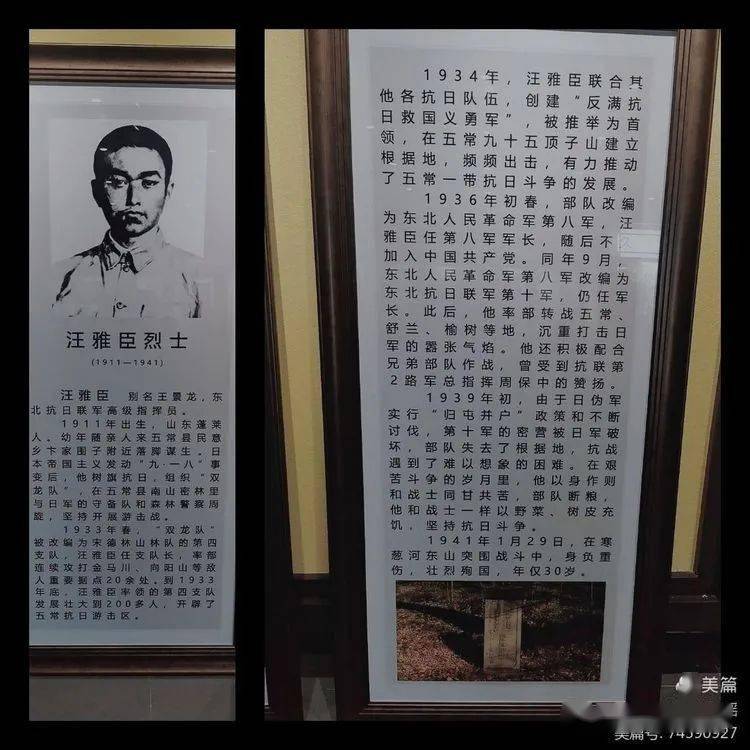 汪雅臣烈士
(1911—1941)
汪雅臣 别名王景龙，东
北抗日联军高级指挥员。
1911年出生，山东蓬莱
人。幼年随亲人来五常县民意
乡卞家围子附近落脚谋生。日
本帝国主义发动“九·一八”事
变后，他树旗抗日，组织“双
龙队”，在五常县南山密林里
与日军的守备队和森林警察周
旋，坚持开展游击战。
1933年春，“双龙队”
被改编为宋德林山林队的第四
支队，汪雅臣任支队长，率部
连续攻打金马川、向阳山等敌
人重要据点20余处。到1933
年底，汪雅臣率领的第四支队
发展壮大到200多人，开辟了
五常抗日游击区。
1934年，汪雅臣联合其
他各抗日队伍，创建“反满抗
日救国义勇军”，被推举为首
领，在五常九十五顶子山建立
根据地，频频出击，有力推动
了五常一带抗日斗争的发展。
1936年初春，部队改编
为东北人民革命军第八军，汪
雅臣任第八军军长，随后不久
加入中国共产党。同年9月，
东北人民革命军第八军改编为
东北抗日联军第十军，仍任军
长。此后，他率部转战五常、
舒兰、榆树等地，沉重打击日
军的嚣张气焰。他还积极配合
兄弟部队作战，曾受到抗联第
2路军总指挥周保中的赞扬。
1939年初，由于日伪军
实行“归屯并户”政策和不断
讨伐，第十军的密营被日军破
坏，部队失去了根据地，抗战
遇到了难以想象的困难。在艰
苦斗争的岁月里，他以身作则
和战士同甘共苦，部队断粮，
他和战士一样以野菜、树皮充
饥，坚持抗日斗争。
1941年1月29日，在寒
葱河东山突围战斗中，身负重
伤，壮烈殉国，年仅30岁。
美篇
美篇号: 74590927